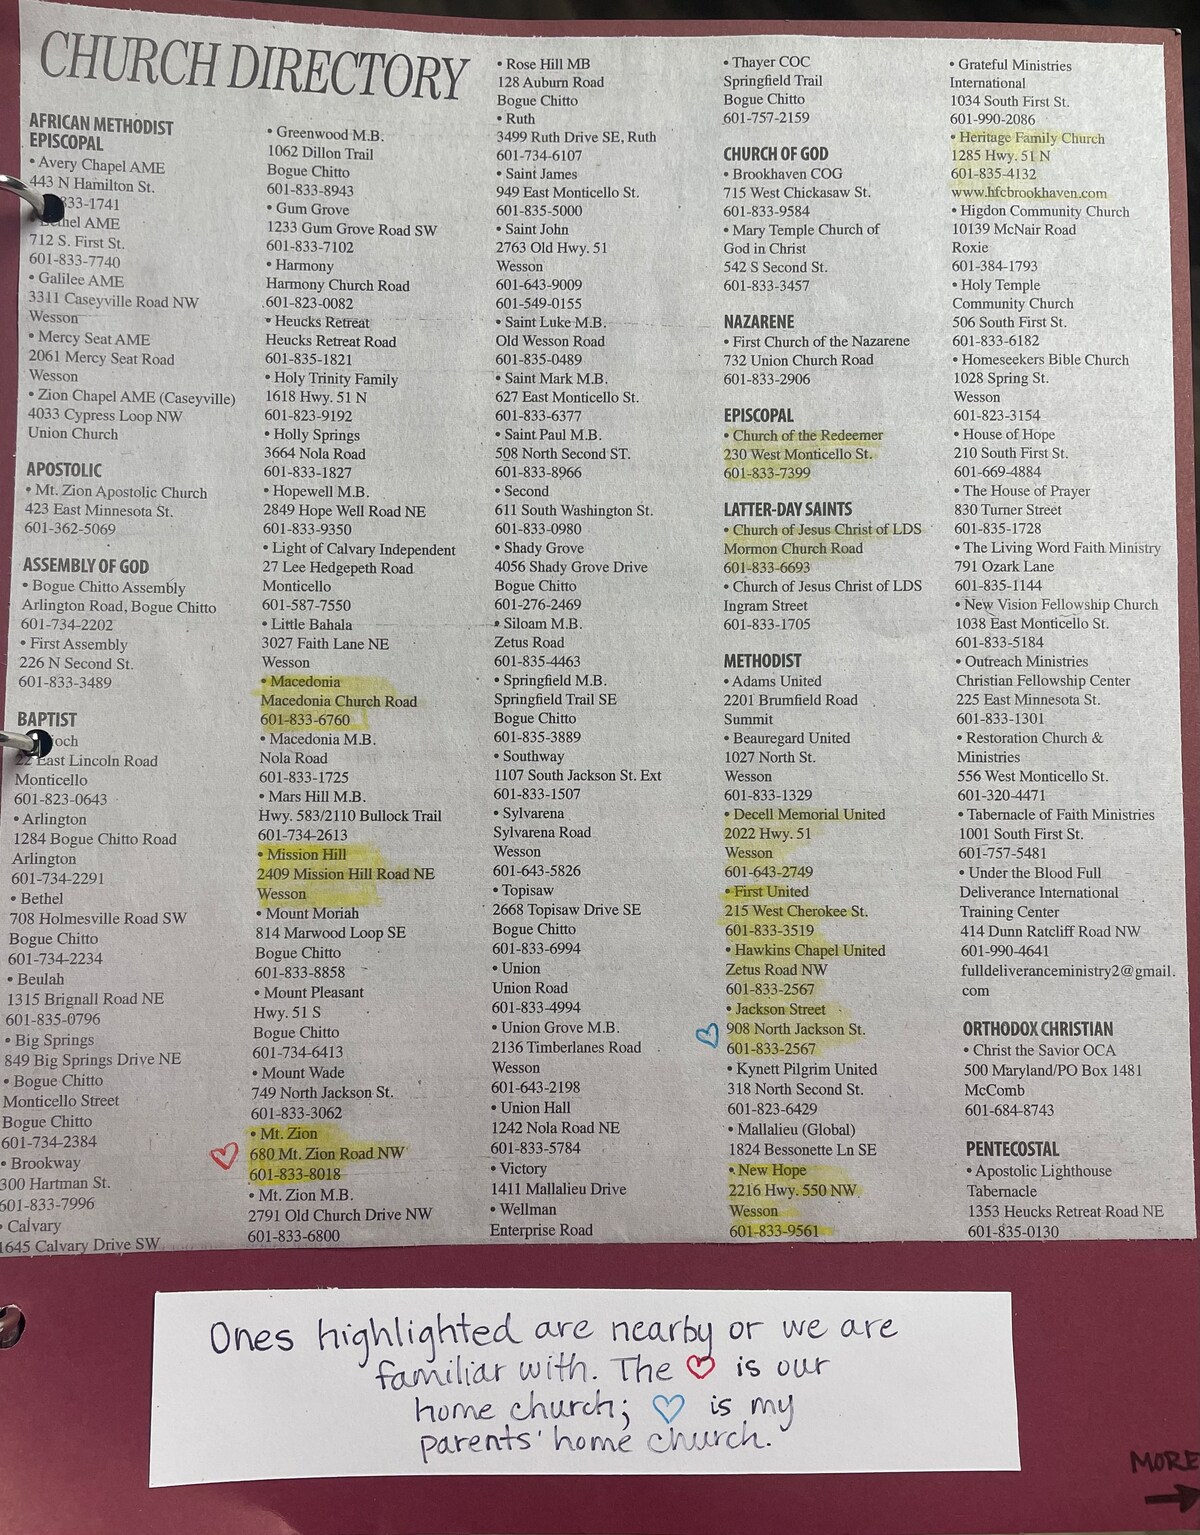 CHURCH DIRECTORY
AFRICAN METHODIST
EPISCOPAL
• Avery Chapel AME
443 N Hamilton St.
833-1741
AME
712 S. First St.
601-833-7740
• Galilee AME
3311 Caseyville Road NW
Wesson
• Mercy Seat AME
2061 Mercy Seat Road
Wesson
• Zion Chapel AME (Caseyville)
4033 Cypress Loop NW
Union Church
APOSTOLIC
• Mt. Zion Apostolic Church
423 East Minnesota St.
601-362-5069
ASSEMBLY OF GOD
• Bogue Chitto Assembly
Arlington Road, Bogue Chitto
601-734-2202
• First Assembly
226 N Second St.
601-833-3489
BAPTIST
22 East Lincoln Road
Monticello
601-823-0643
• Arlington
1284 Bogue Chitto Road
Arlington
601-734-2291
• Bethel
708 Holmesville Road SW
Bogue Chitto
601-734-2234
• Beulah
1315 Brignall Road NE
601-835-0796
• Big Springs
849 Big Springs Drive NE
• Bogue Chitto
Monticello Street
Bogue Chitto
601-734-2384
• Brookway
300 Hartman St.
601-833-7996
• Calvary
1645 Calvary Drive SW
• Greenwood M.B.
1062 Dillon Trail
Bogue Chitto
601-833-8943
• Gum Grove
1233 Gum Grove Road SW
601-833-7102
• Harmony
Harmony Church Road
601-823-0082
• Heucks Retreat
Heucks Retreat Road
601-835-1821
• Holy Trinity Family
1618 Hwy. 51 N
601-823-9192
• Holly Springs
3664 Nola Road
601-833-1827
• Hopewell M.B.
2849 Hope Well Road NE
601-833-9350
• Light of Calvary Independent
27 Lee Hedgepeth Road
Monticello
601-587-7550
• Little Bahala
3027 Faith Lane NE
Wesson
• Macedonia
Macedonia Church Road
601-833-6760
• Macedonia M.B.
Nola Road
601-833-1725
• Mars Hill M.B.
Hwy. 583/2110 Bullock Trail
601-734-2613
• Mission Hill
2409 Mission Hill Road NE
Wesson
• Mount Moriah
814 Marwood Loop SE
Bogue Chitto
601-833-8858
• Mount Pleasant
Hwy. 51 S
Bogue Chitto
601-734-6413
• Mount Wade
749 North Jackson St.
601-833-3062
• Mt. Zion
680 Mt. Zion Road NW
601-833-8018
• Mt. Zion M.B.
2791 Old Church Drive NW
601-833-6800
• Rose Hill MB
128 Auburn Road
Bogue Chitto
• Ruth
3499 Ruth Drive SE, Ruth
601-734-6107
• Saint James
949 East Monticello St.
601-835-5000
• Saint John
2763 Old Hwy. 51
Wesson
601-643-9009
601-549-0155
• Saint Luke M.B.
Old Wesson Road
601-835-0489
• Saint Mark M.B.
627 East Monticello St.
601-833-6377
• Saint Paul M.B.
508 North Second ST.
601-833-8966
• Second
611 South Washington St.
601-833-0980
• Shady Grove
4056 Shady Grove Drive
Bogue Chitto
601-276-2469
• Siloam M.B.
Zetus Road
601-835-4463
• Springfield M.B.
Springfield Trail SE
Bogue Chitto
601-835-3889
• Southway
1107 South Jackson St. Ext
601-833-1507
• Sylvarena
Sylvarena Road
Wesson
601-643-5826
• Topisaw
2668 Topisaw Drive SE
Bogue Chitto
601-833-6994
• Union
Union Road
601-833-4994
• Union Grove M.B.
2136 Timberlanes Road
Wesson
601-643-2198
• Union Hall
1242 Nola Road NE
601-833-5784
• Victory
1411 Mallalieu Drive
• Wellman
Enterprise Road
• Thayer COC
Springfield Trail
Bogue Chitto
601-757-2159
CHURCH OF GOD
• Brookhaven COG
715 West Chickasaw St.
601-833-9584
• Mary Temple Church of
God in Christ
542 S Second St.
601-833-3457
NAZARENE
• First Church of the Nazarene
732 Union Church Road
601-833-2906
EPISCOPAL
• Church of the Redeemer
230 West Monticello St.
601-833-7399
LATTER-DAY SAINTS
• Church of Jesus Christ of LDS
Mormon Church Road
601-833-6693
• Church of Jesus Christ of LDS
Ingram Street
601-833-1705
METHODIST
• Adams United
2201 Brumfield Road
Summit
• Beauregard United
1027 North St.
Wesson
601-833-1329
• Decell Memorial United
2022 Hwy. 51
Wesson
601-643-2749
• First United
215 West Cherokee St.
601-833-3519
• Hawkins Chapel United
Zetus Road NW
601-833-2567
• Jackson Street
908 North Jackson St.
601-833-2567
• Kynett Pilgrim United
318 North Second St.
601-823-6429
• Mallalieu (Global)
1824 Bessonette Ln SE
• New Hope
2216 Hwy. 550 NW
Wesson
601-833-9561
• Grateful Ministries
International
1034 South First St.
601-990-2086
• Heritage Family Church
1285 Hwy. 51 N
601-835-4132
www.hfcbrookhaven.com
• Higdon Community Church
10139 McNair Road
Roxie
601-384-1793
• Holy Temple
Community Church
506 South First St.
601-833-6182
• Homeseekers Bible Church
1028 Spring St.
Wesson
601-823-3154
• House of Hope
210 South First St.
601-669-4884
• The House of Prayer
830 Turner Street
601-835-1728
• The Living Word Faith Ministry
791 Ozark Lane
601-835-1144
• New Vision Fellowship Church
1038 East Monticello St.
601-833-5184
• Outreach Ministries
Christian Fellowship Center
225 East Minnesota St.
601-833-1301
• Restoration Church &
Ministries
556 West Monticello St.
601-320-4471
• Tabernacle of Faith Ministries
1001 South First St.
601-757-5481
• Under the Blood Full
Deliverance International
Training Center
414 Dunn Ratcliff Road NW
601-990-4641
fulldeliveranceministry2@gmail.
com
ORTHODOX CHRISTIAN
• Christ the Savior OCA
500 Maryland/PO Box 1481
McComb
601-684-8743
PENTECOSTAL
• Apostolic Lighthouse
Tabernacle
1353 Heucks Retreat Road NE
601-835-0130
Ones highlighted are nearby or we are
familiar with. The ♡ is our
home church; ♡ is my
parents' home church.
MORE
→